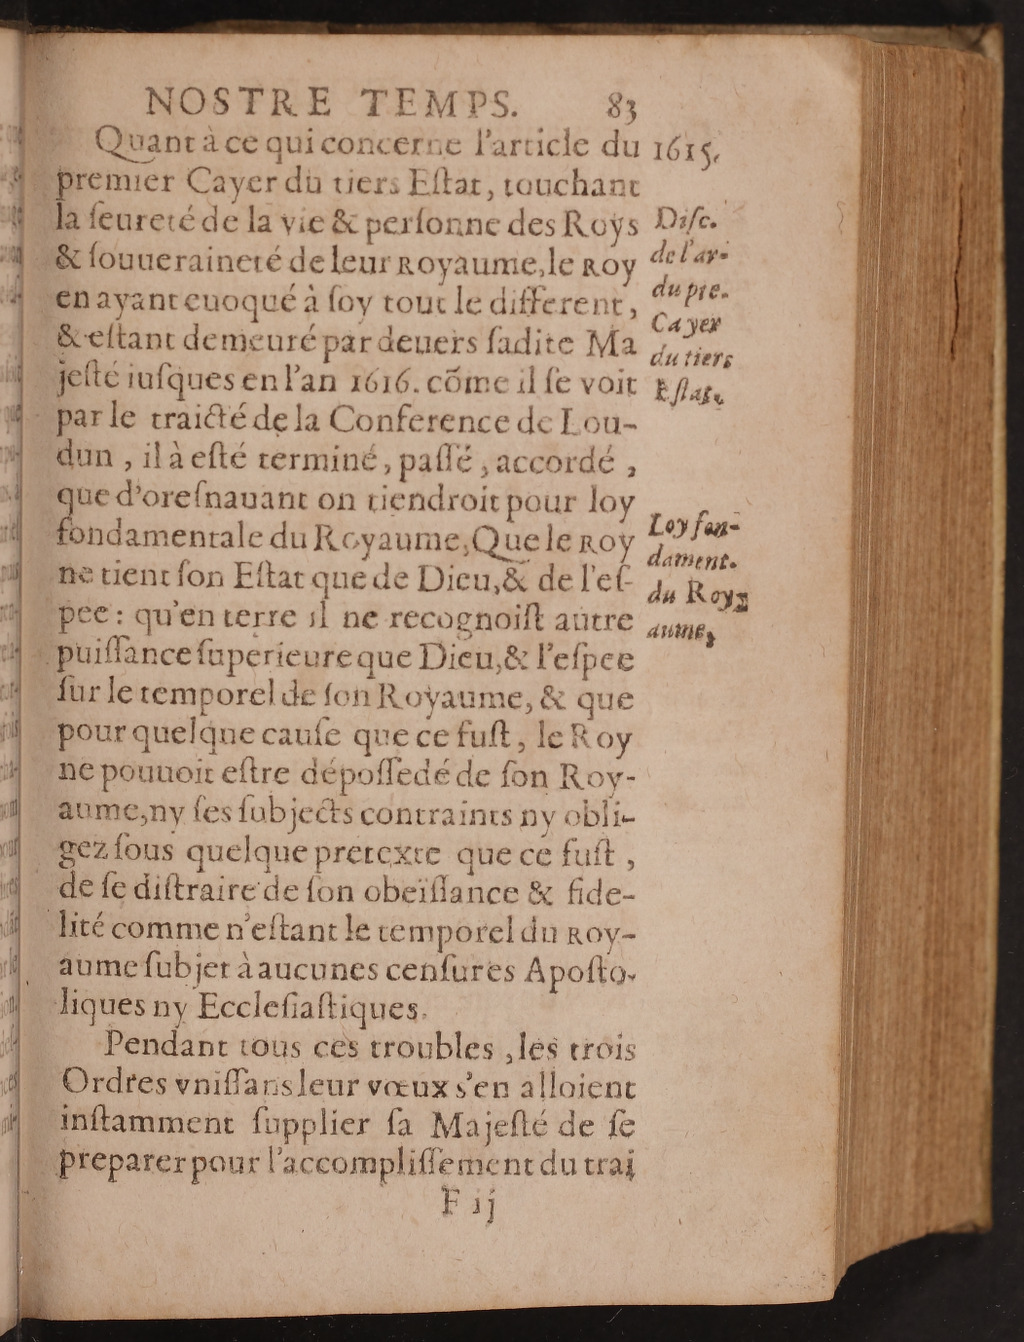 NOSTRE TEMPS. 83
Quant à ce qui concerne l'article du 1615.
premier Cayer du tiers Eſtat, touchant
la ſeureté de la vie & perſonne des Roys
& ſouueraineté de leur royaume, le roy
en ayant euoqué à ſoy tout le different,
& eſtant demeuré par deuers ſadite Ma
jeſté iuſques en l'an 1616. cõme il ſe voit
par le traicté de la Conference de Lou-
dun, il à eſté terminé, paſſé, accordé,
que d'oreſnauant on tiendroit pour loy
fondamentale du Royaume, Que le roy
ne tient ſon Eſtat que de Dieu, & de l'eſ-
pee : qu'en terre il ne recognoiſt autre
puiſſance ſuperieure que Dieu, & l'eſpee
ſur le temporel de ſon Royaume, & que
pour quelque cauſe que ce fuſt, le Roy
ne pouuoit eſtre dépoſſedé de ſon Roy-
aume, ny ſes ſubjects contraints ny obli-
gez ſous quelque pretexte que ce fuſt,
de ſe diſtraire de ſon obeiſſance & fide-
lité comme n'eſtant le temporel du roy-
aume ſubjet à aucunes cenſures Apoſto-
liques ny Eccleſiaſtiques.
Pendant tous ces troubles, les trois
Ordres vniſſans leur vœux s'en alloient
inſtamment ſupplier ſa Majeſté de ſe
preparer pour l'accompliſſement du trai
F ij
Diſc.
de l'ar-
du pre.
Cayer
du tiers
Eſtat.
Loy fon-
dament.
du Roy